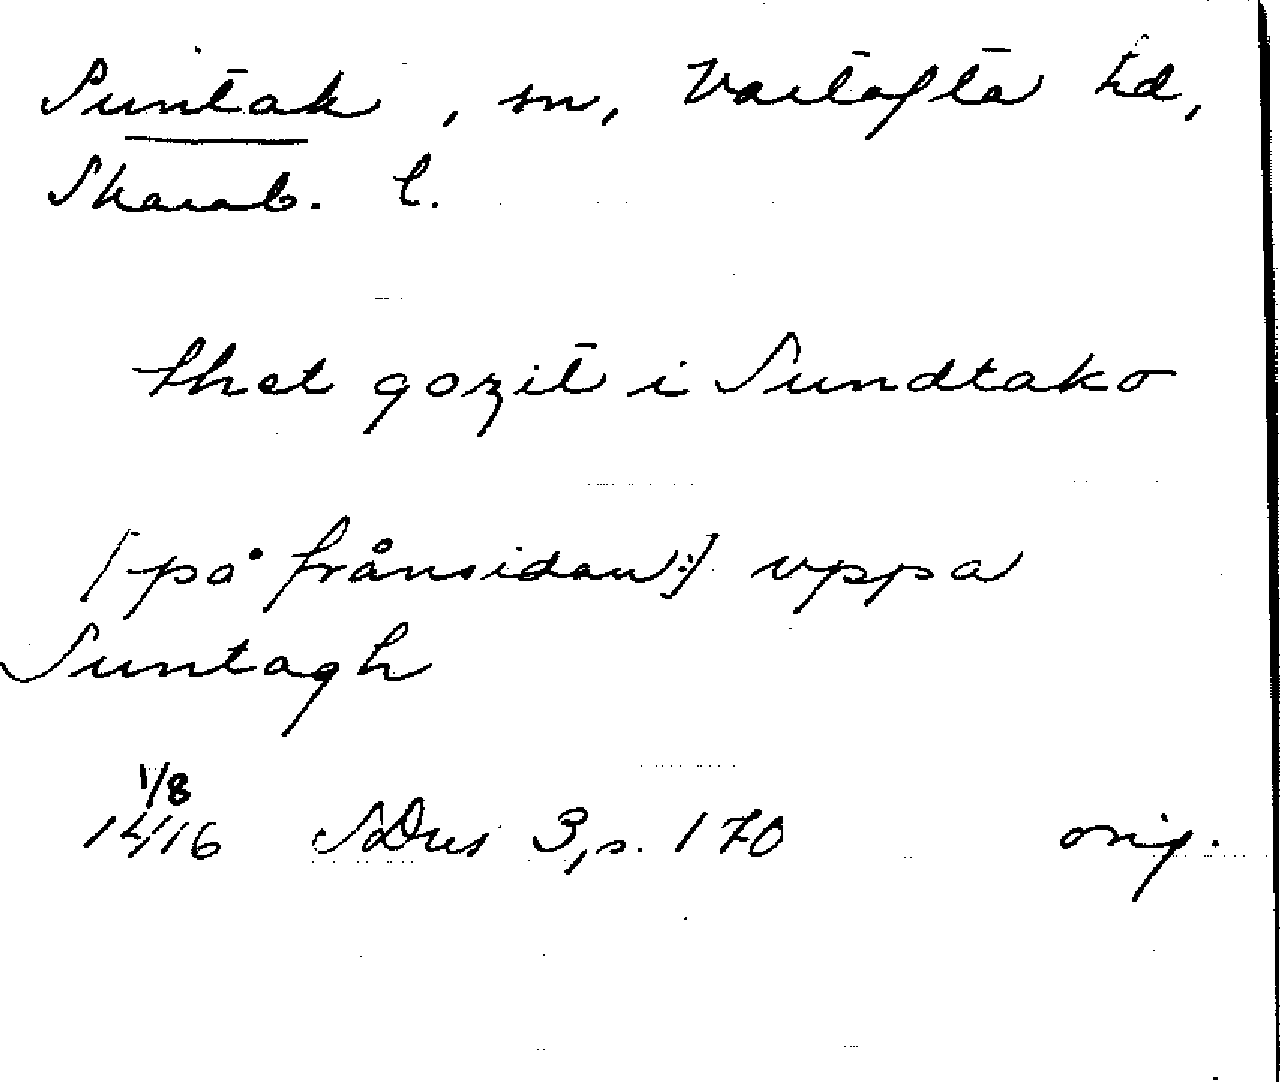 Suntak, sn, Vartofta hd,
Skarab. l.
thet gozit i Sundtako
[på frånsidan:] vppa
Suntagh
1/8
1416 SDns 3, s. 170 orig.